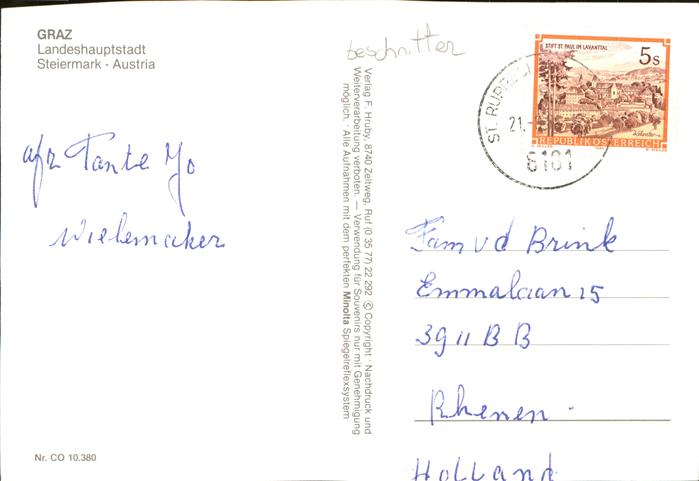 GRAZ
Landeshauptstadt
Steiermark · Austria
beschnitten
STIFT ST. PAUL IM LAVANTTAL
5s
REPUBLIK ÖSTERREICH
ST. RUPRE
21.-
8181
Verlag F. Hruby, 8740 Zeltweg, Ruf (0 35 77) 22 292 © Copyright · Nachdruck und
Weiterverarbeitung verboten. — Verwendung für Souvenirs nur mit Genehmigung
möglich. · Alle Aufnahmen mit dem perfekten Minolta Spiegelreflexsystem
afz Tante Jo
Wielemaker
Fam vd Brink
Emmalaan 15
3911 B B
Rhenen.
Holland
Nr. CO 10.380